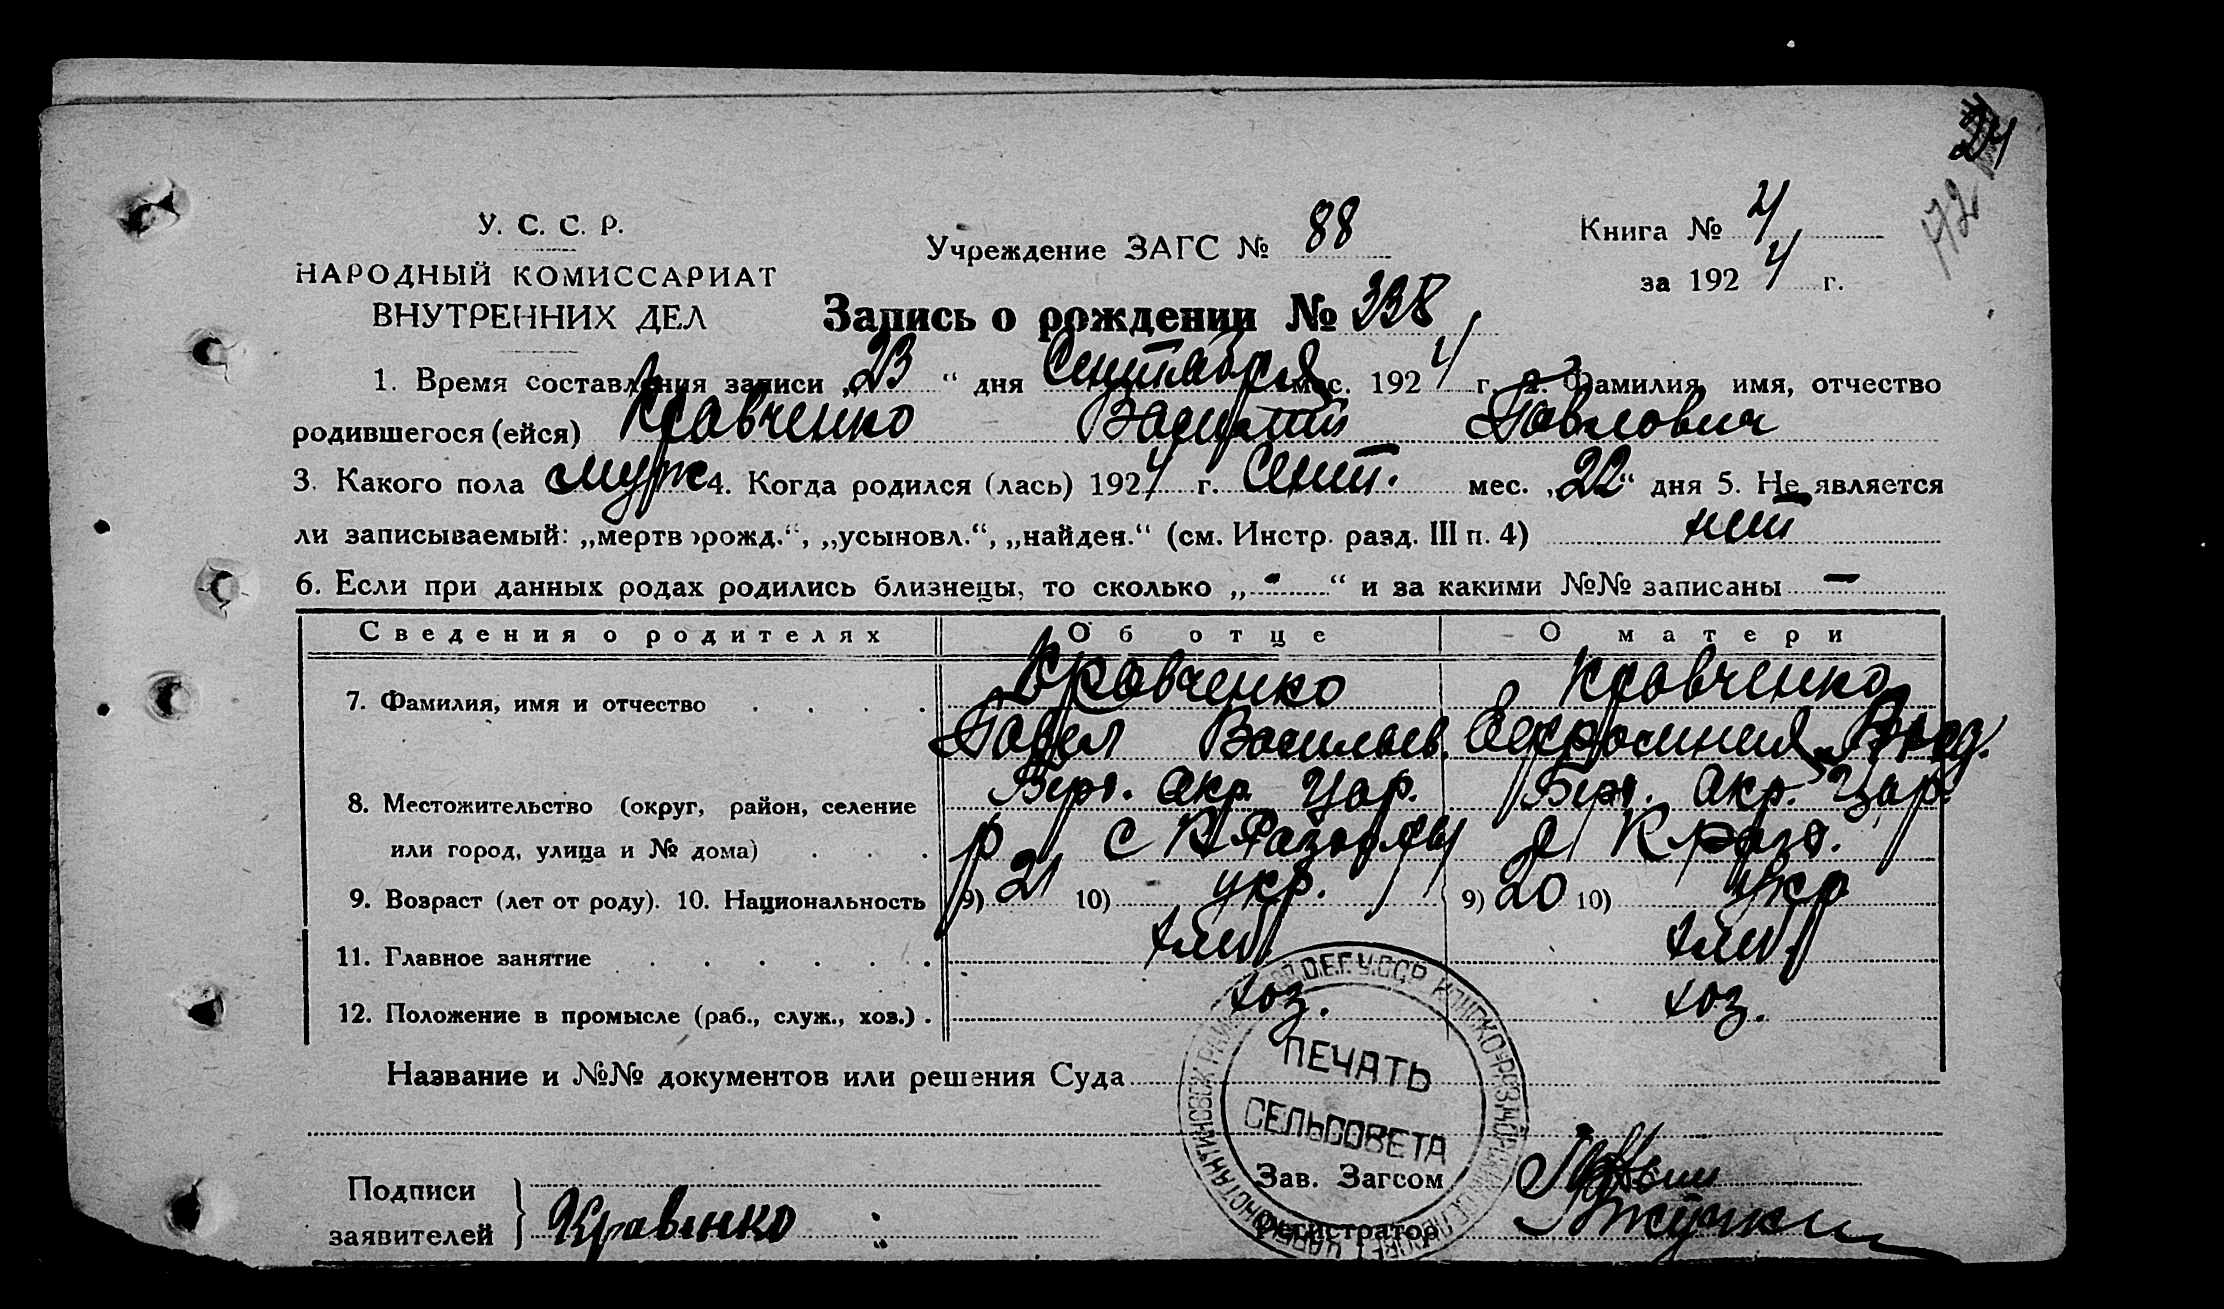 24
172
У. С. С. Р.
НАРОДНЫЙ КОМИССАРИАТ
ВНУТРЕННИХ ДЕЛ
Учреждение ЗАГС № 88
Книга № 4
за 1924 г.
Запись о рождении № 338
1. Время составления записи „23“ дня Сентября мес. 1924 г. 2. Фамилия, имя, отчество
родившегося (ейся) Кравченко Павлович
3. Какого пола муж 4. Когда родился (лась) 1924 г. Сент. мес. „22“ дня 5. Не является
ли записываемый: „мертворожд.“, „усыновл.“, „найден.“ (см. Инстр. разд. III п. 4) нет
6. Если при данных родах родились близнецы, то сколько „-“ и за какими №№ записаны —
Сведения о родителях Об отце О матери
7. Фамилия, имя и отчество Кравченко Кравченко
Павел Васильев.
8. Местожительство (округ, район, селение Бер. Окр. Цар. Бер. Окр. Цар.
или город, улица и № дома) р с К
9. Возраст (лет от роду). 10. Национальность 9) 21 10) укр. 9) 20 10) укр
11. Главное занятие хлиб. хлиб.
12. Положение в промысле (раб., служ., хоз.) хоз. хоз.
Название и №№ документов или решения Суда
ПЕЧАТЬ
СЕЛЬСОВЕТА
Подписи
заявителей
Кравенко
Зав. Загсом
Регистратор